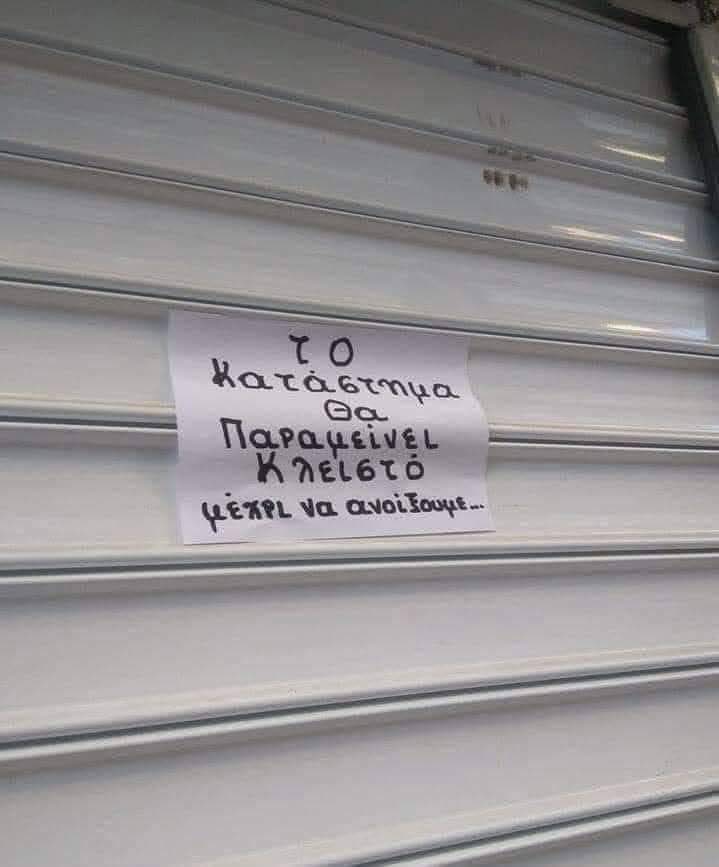 το
Κατάστημα
Θα
Παραμείνει
Κλειστό
μέχρι να ανοίξουμε...